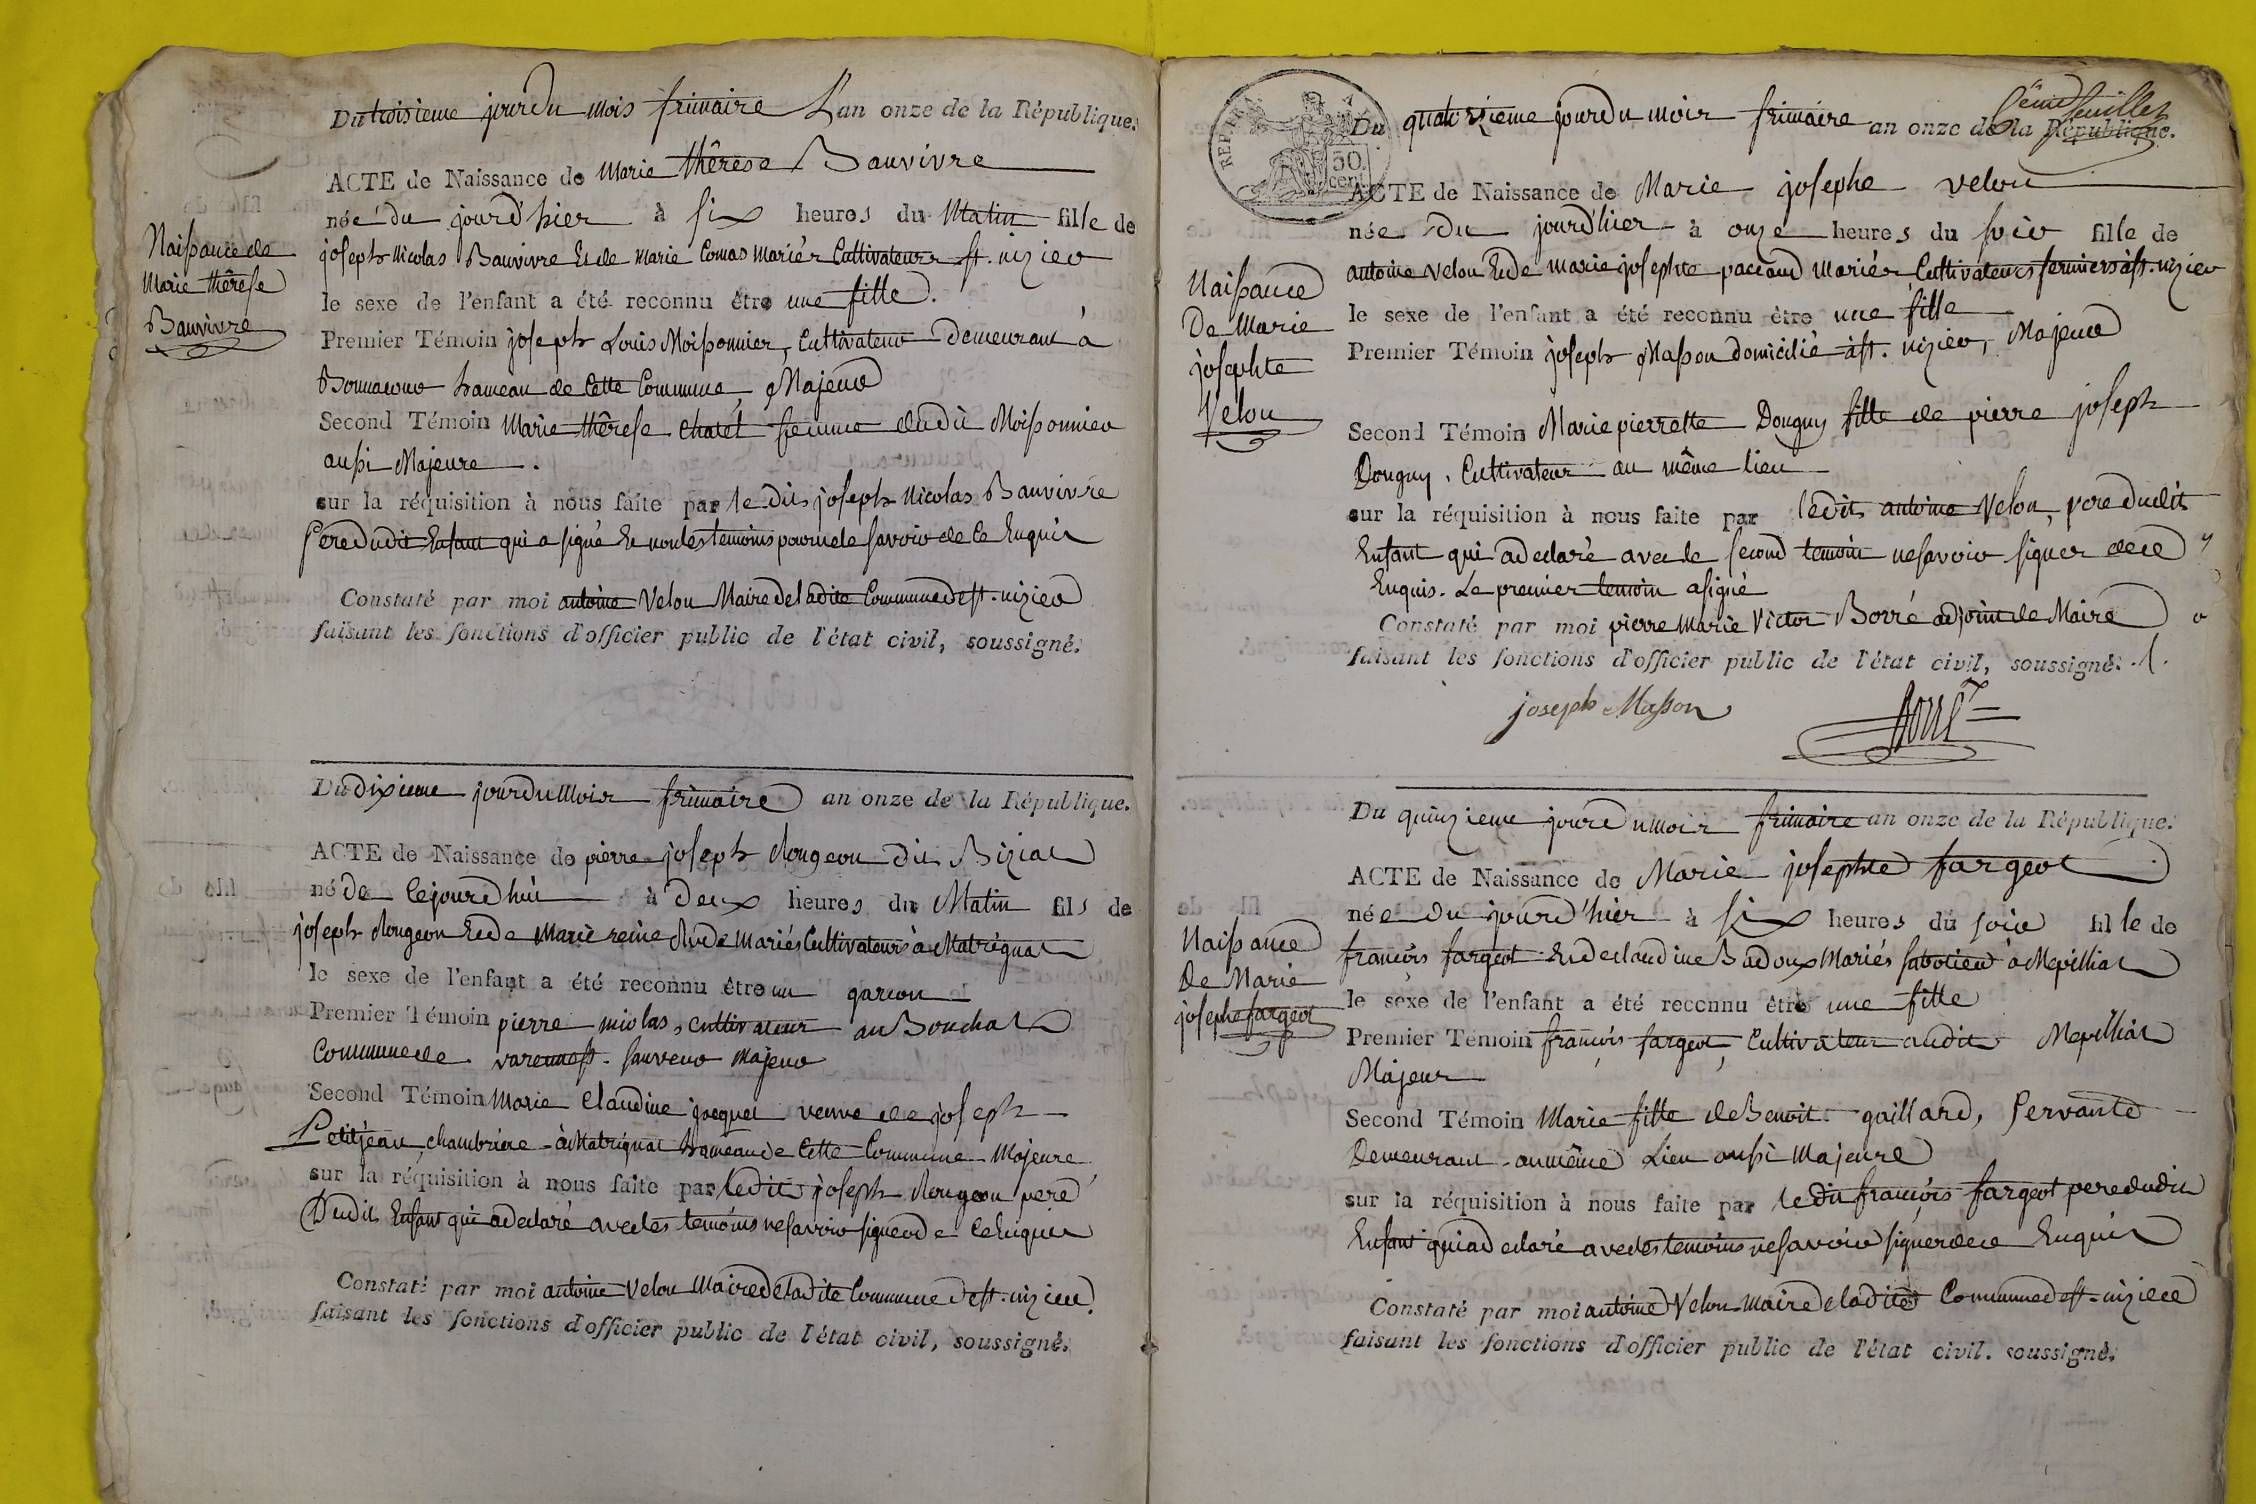 Du troisieme jour du mois frimaire L'an onze de la République.
ACTE de Naissance de Marie thérese Bauvivre
née du jourd'hier à six heures du Matin fille de
joseph Nicolas Bauvivre Et de Marie Comas Mariés Cultivateurs st. nizier
le sexe de l'enfant a été reconnu être une fille.
Premier Témoin joseph Louis Moissonnier, Cultivateur Demeurant à
hameau de Cette Commune, Majeur
Second Témoin Marie thérese Chatel femme dudit Moissonnier
aussi Majeure.
sur la réquisition à nous faite par le dit joseph Nicolas Bauvivre
Pere dudit Enfant qui a signé Et non les temoins pour ne le savoir de Ce Enquis
Constaté par moi antoine Velon Maire de ladite Commune de st. nizier
faisant les fonctions d'officier public de l'état civil, soussigné.
Naissance de
Marie thérese
Bauvivre
Du dixieme jour du Mois frimaire an onze de la République.
ACTE de Naissance de pierre joseph Rougeon dit Biziat
né de Cejourd'hui à Deux heures du Matin fils de
joseph Rougeon Et de Marie reine Mariés Cultivateurs à Matrignat
le sexe de l'enfant a été reconnu être un garcon
Premier Témoin pierre niolas, cultivateur au Bouchat
Commune de varennes st. sauveur Majeur
Second Témoin Marie Claudine jacquet veuve de joseph
Petitjean, chambriere à Matrignat hameau de Cette Commune Majeure
sur la réquisition à nous faite par ledit joseph Rougeon pere
Dudit Enfant qui a declaré avec les temoins ne savoir signer de Ce Enquis
Constaté par moi antoine Velon Maire de ladite Commune de st. nizier.
faisant les fonctions d'officier public de l'état civil, soussigné.
feuillet
REP. FRA
50
cen
Du quatorzieme jour du mois frimaire an onze de la République.
ACTE de Naissance de Marie josephe velon
née Du jourd'hier à onze heures du soir fille de
antoine velon Et de marie josephte paccaud Mariés Cultivateurs fermiers à st. nizier
le sexe de l'enfant a été reconnu être une fille
Premier Témoin joseph Masson domicilié à st. nizier, Majeur
Second Témoin Marie pierrette Donguy fille de pierre joseph
Donguy, Cultivateur au même lieu
sur la réquisition à nous faite par ledit antoine Velon, pere dudit
Enfant qui a declaré avec le second temoin ne savoir signer de ce
Enquis. Le premier temoin a signé
Constaté par moi pierre Marie Victor Borré adjoint de Maire
faisant les fonctions d'officier public de l'état civil, soussigné.
joseph Masson Borré
Naissance
De Marie
josephte
Velon
Du quinzieme jour du mois frimaire an onze de la République.
ACTE de Naissance de Marie josephte fargeot
née Du jourd'hier à six heures du soir fille de
francois fargeot Et de claudine Badoux Mariés sabotier à Mepilliat
le sexe de l'enfant a été reconnu être une fille
Premier Témoin francois fargeot, Cultivateur audit Mepilliat
Majeur
Second Témoin Marie fille de Benoit gaillard, Servante
Demeurant au même Lieu aussi Majeure
sur la réquisition à nous faite par le dit francois fargeot pere dudit
Enfant qui a declaré avec les temoins ne savoir signer de ce Enquis
Constaté par moi antoine Velon maire de ladite Commune de st. nizier
faisant les fonctions d'officier public de l'état civil. soussigné.
Naissance
De Marie
josephe fargeot